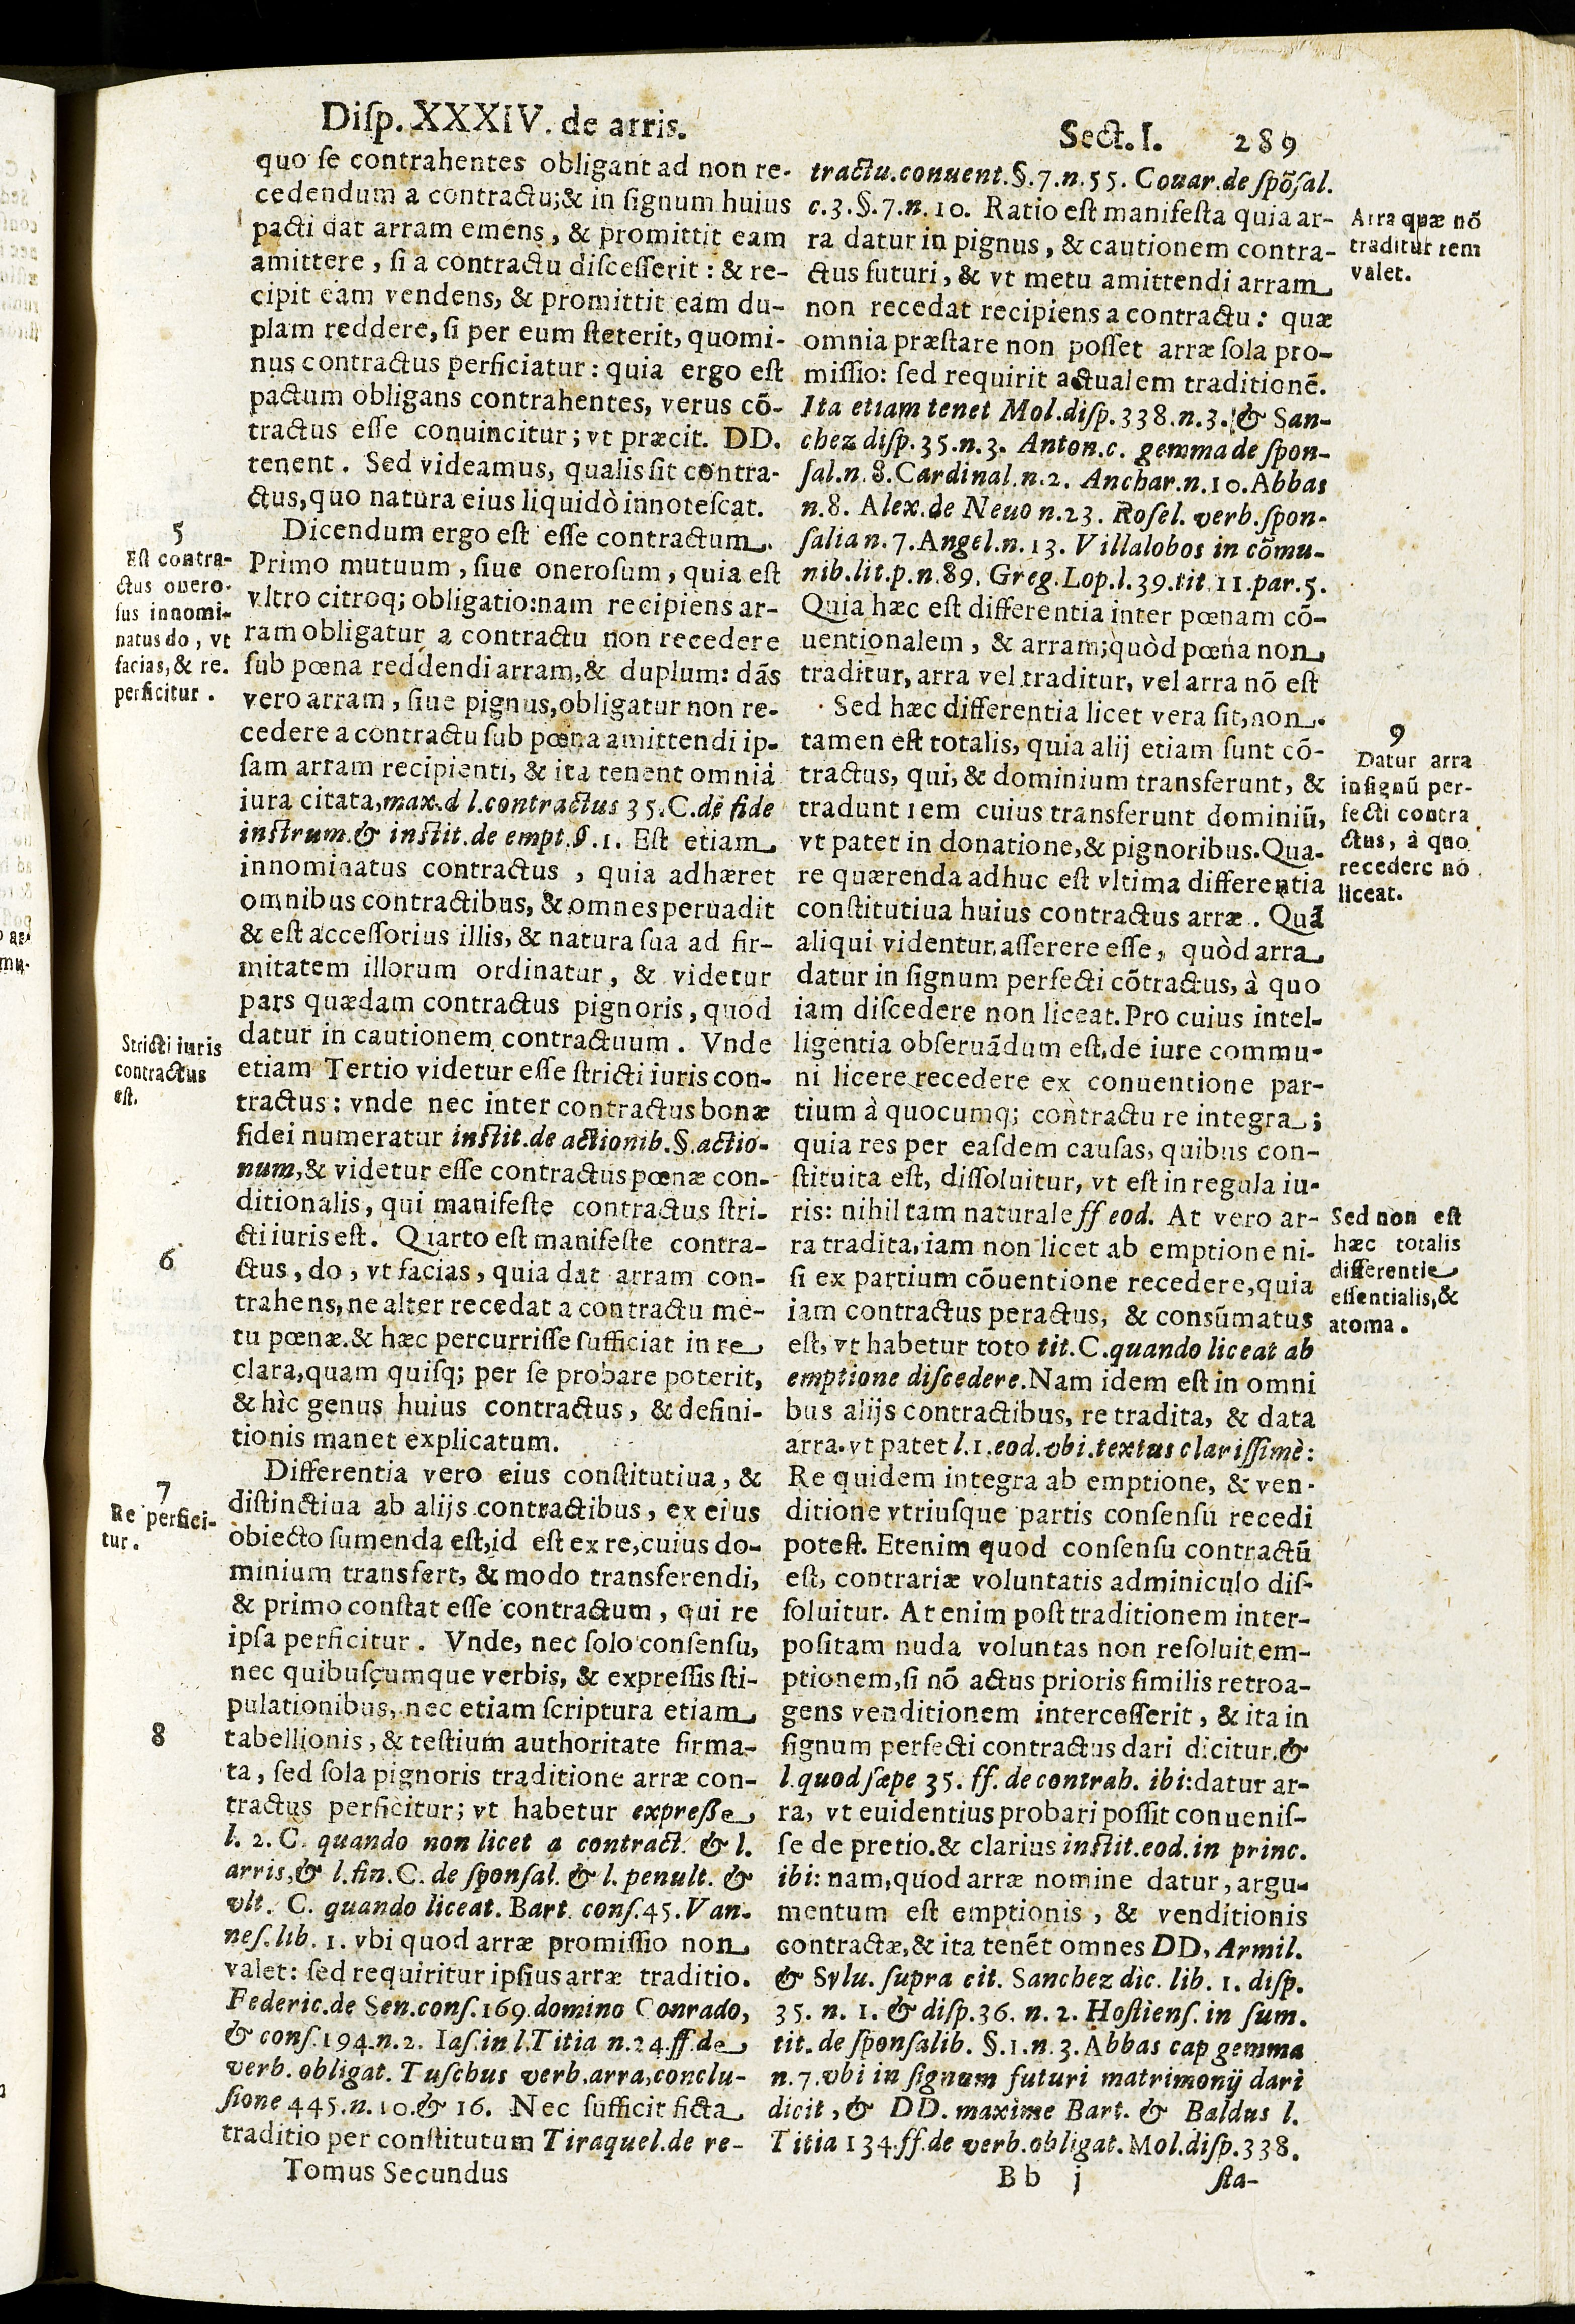 Disp. XXXIV. de arris.
quo se contrahentes obligant ad non re-
cedendum a contractu; & in signum huius
pacti dat arram emens, & promittit eam
amittere, si a contractu discesserit: & re-
cipit eam vendens, & promittit eam du-
plam reddere, si per eum steterit, quomi-
nus contractus perficiatur: quia ergo est
pactum obligans contrahentes, verus cō-
tractus esse conuincitur; vt præcit. DD.
tenent. Sed videamus, qualis sit contra-
ctus, quo natura eius liquidò innotescat.
5
Est contra-
ctus onero-
sus innomi-
natus do, vt
facias, & re.
perficitur.
Dicendum ergo est esse contractum.
Primo mutuum, siue onerosum, quia est
vltro citroq; obligatio: nam recipiens ar-
ram obligatur a contractu non recedere
sub pœna reddendi arram, & duplum: dãs
vero arram, siue pignus, obligatur non re-
cedere a contractu sub pœna amittendi ip-
sam arram recipienti, & ita tenent omnia
iura citata, max. d l. contractus 35. C. de fide
instrum. & instit. de empt. §. 1. Est etiam
innominatus contractus, quia adhæret
omnibus contractibus, & omnes peruadit
& est accessorius illis, & natura sua ad fir-
mitatem illorum ordinatur, & videtur
pars quædam contractus pignoris, quod
datur in cautionem contractuum. Vnde
Stricti iuris
contractus
est.
etiam Tertio videtur esse stricti iuris con-
tractus: vnde nec inter contractus bonæ
fidei numeratur instit. de actionib. §. actio-
num, & videtur esse contractus pœnæ con-
ditionalis, qui manifeste contractus stri-
cti iuris est. Quarto est manifeste contra-
6
ctus, do, vt facias, quia dat arram con-
trahens, ne alter recedat a contractu me-
tu pœnæ. & hæc percurrisse sufficiat in re
clara, quam quisq; per se probare poterit,
& hìc genus huius contractus, & defini-
tionis manet explicatum.
7
Re perfici-
tur.
Differentia vero eius constitutiua, &
distinctiua ab alijs contractibus, ex eius
obiecto sumenda est, id est ex re, cuius do-
minium transfert, & modo transferendi,
& primo constat esse contractum, qui re
ipsa perficitur. Vnde, nec solo consensu,
nec quibuscumque verbis, & expressis sti-
pulationibus, nec etiam scriptura etiam
8
tabellionis, & testium authoritate firma-
ta, sed sola pignoris traditione arræ con-
tractus perficitur; vt habetur expresse
l. 2. C. quando non licet a contract. & l.
arris, & l. fin. C. de sponsal. & l. penult. &
vlt. C. quando liceat. Bart. cons. 45. Van-
nes. lib. 1. vbi quod arræ promissio non
valet: sed requiritur ipsius arræ traditio.
Federic. de Sen. cons. 169. domino Conrado,
& cons. 194. n. 2. Ias. in l. Titia n. 24. ff. de
verb. obligat. Tuschus verb. arra, conclu-
sione 445. n. 10. & 16. Nec sufficit ficta
traditio per constitutum Tiraquel. de re-
Tomus Secundus
Sect. I. 289
tractu. conuent. §. 7. n. 55. Couar. de spōsal.
c. 3. §. 7. n. 10. Ratio est manifesta quia ar-
ra datur in pignus, & cautionem contra-
ctus futuri, & vt metu amittendi arram
non recedat recipiens a contractu: quæ
omnia præstare non posset arræ sola pro-
missio: sed requirit actualem traditionē.
Arra quæ nō
traditur rem
valet.
Ita etiam tenet Mol. disp. 338. n. 3. & San-
chez disp. 35. n. 3. Anton. c. gemma de spon-
sal. n. 8. Cardinal. n. 2. Anchar. n. 10. Abbas
n. 8. Alex. de Neuo n. 23. Rosel. verb. spon-
salia n. 7. Angel. n. 13. Villalobos in cōmu-
nib. lit. p. n. 89. Greg. Lop. l. 39. tit. 11. par. 5.
Quia hæc est differentia inter pœnam cō-
uentionalem, & arram; quòd pœna non
traditur, arra vel traditur, vel arra nō est
9
Datur arra
in signū per-
fecti contra
ctus, à quo
recedere nō
liceat.
Sed hæc differentia licet vera sit, non
tamen est totalis, quia alij etiam sunt cō-
tractus, qui, & dominium transferunt, &
tradunt rem cuius transferunt dominiū,
vt patet in donatione, & pignoribus. Qua-
re quærenda adhuc est vltima differentia
constitutiua huius contractus arræ. Quã
aliqui videntur asserere esse, quòd arra
datur in signum perfecti cōtractus, à quo
iam discedere non liceat. Pro cuius intel-
ligentia obseruãdum est, de iure commu-
ni licere recedere ex conuentione par-
tium à quocumq; contractu re integra;
quia res per easdem causas, quibus con-
stituita est, dissoluitur, vt est in regula iu-
ris: nihil tam naturale ff eod. At vero ar-
ra tradita, iam non licet ab emptione ni-
si ex partium cōuentione recedere, quia
iam contractus peractus, & consūmatus
est, vt habetur toto tit. C. quando liceat ab
Sed non est
hæc totalis
differentie
essentialis, &
atoma.
emptione discedere. Nam idem est in omni
bus alijs contractibus, re tradita, & data
arra. vt patet l. 1. eod. vbi. textus clarissimè:
Re quidem integra ab emptione, & ven-
ditione vtriusque partis consensu recedi
potest. Etenim quod consensu contractū
est, contrariæ voluntatis adminiculo dis-
soluitur. At enim post traditionem inter-
positam nuda voluntas non resoluit em-
ptionem, si nō actus prioris similis retroa-
gens venditionem intercesserit, & ita in
signum perfecti contractus dari dicitur. &
l. quod sæpe 35. ff. de contrah. ibi: datur ar-
ra, vt euidentius probari possit conuenis-
se de pretio. & clarius instit. eod. in princ.
ibi: nam, quod arræ nomine datur, argu-
mentum est emptionis, & venditionis
contractæ, & ita tenēt omnes DD, Armil.
& Sylu. supra cit. Sanchez dic. lib. 1. disp.
35. n. 1. & disp. 36. n. 2. Hostiens. in sum.
tit. de sponsalib. §. 1. n. 3. Abbas cap gemma
n. 7. vbi in signum futuri matrimonij dari
dicit, & DD. maxime Bart. & Baldus l.
Titia 134. ff. de verb. obligat. Mol. disp. 338.
Bb j sta-